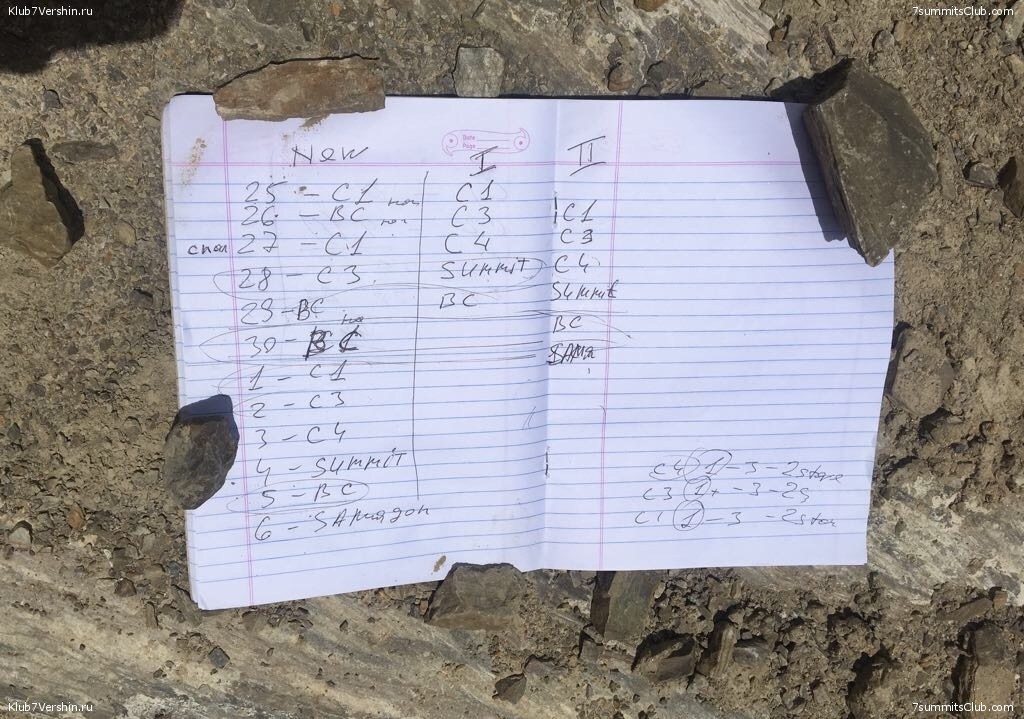 Klub7Vershin.ru 7summitsClub.com
Date
Page
New I II
25 - C1 C1
26 - BC C3 C1
27 - C1 C4 C3
28 - C3 Summit C4
29 - BC BC Summit
30 - BC BC
1 - C1
2 - C3
3 - C4
4 - Summit C4 1 - 3 - 2 stove
5 - BC C3 1+ - 3 - 2s
6 - C1 1 - 3 - 2 stov
Klub7Vershin.ru 7summitsClub.com